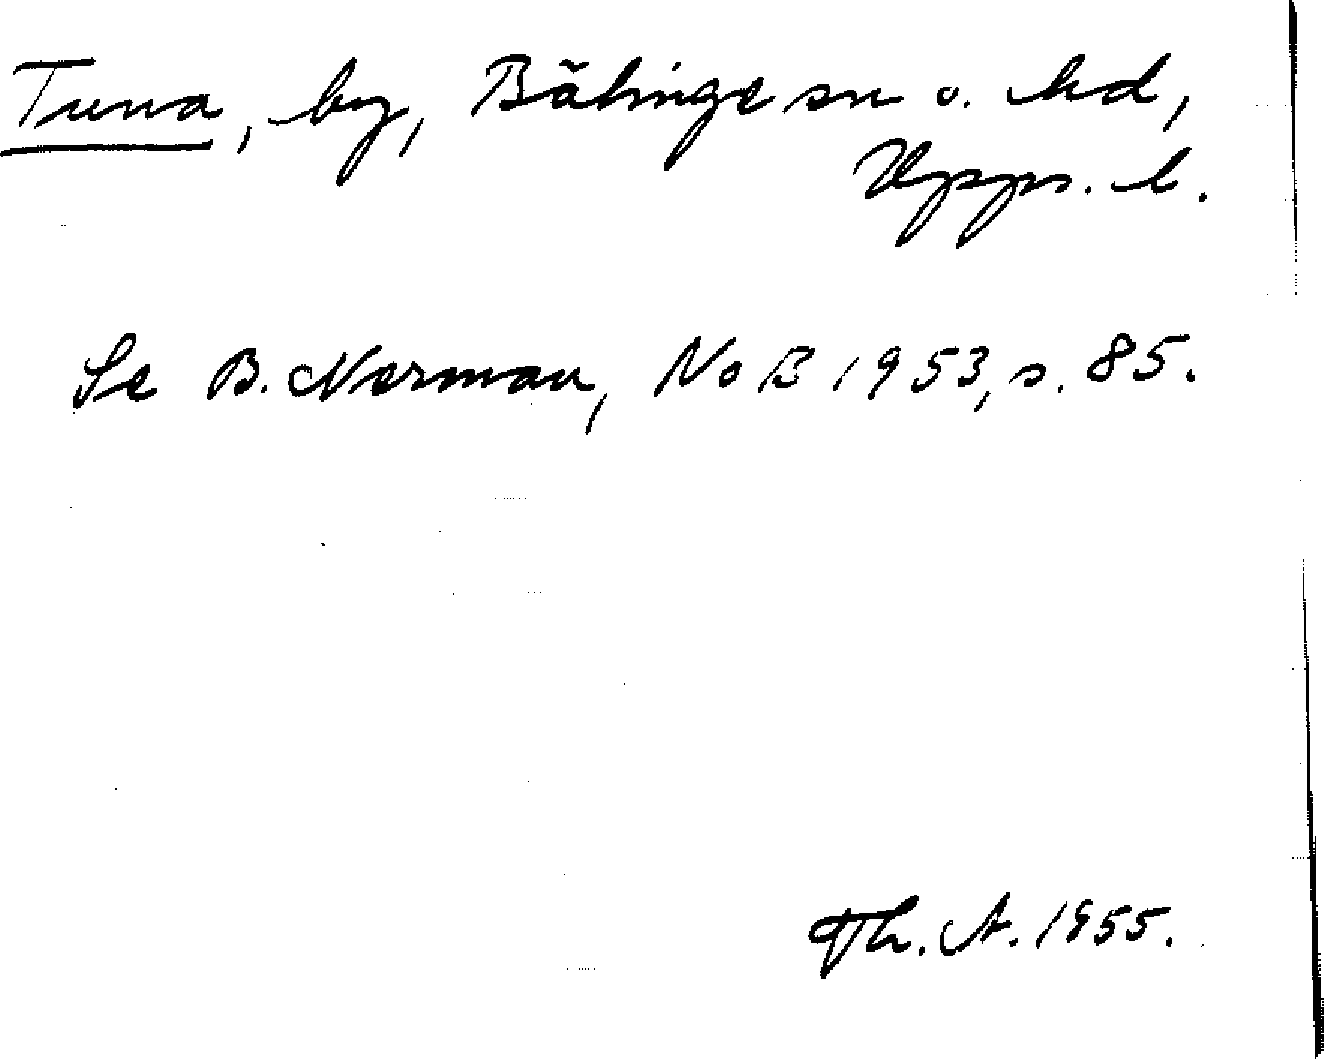 Tuna, by, Bälinge sn o. hd,
Upps. l.
Se B. Nerman, NoB 1953, s. 85.
Th. A. 1955.